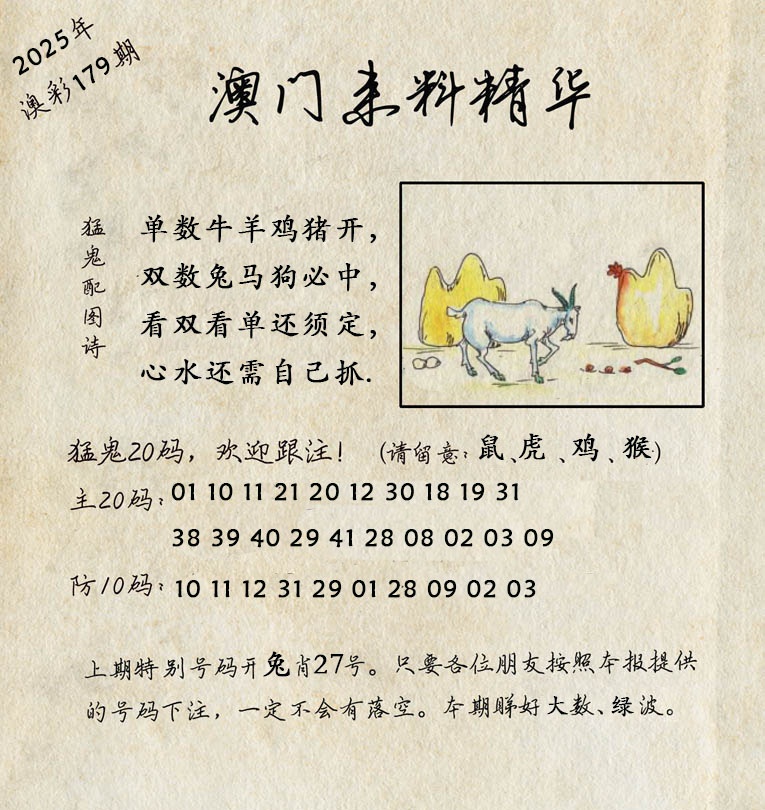 2025年
澳彩179期
澳门来料精华
猛鬼配图诗
单数牛羊鸡猪开，
双数兔马狗必中，
看双看单还须定，
心水还需自己抓.
猛鬼20码，欢迎跟注！（请留意：鼠、虎、鸡、猴）
主20码：01 10 11 21 20 12 30 18 19 31
38 39 40 29 41 28 08 02 03 09
防10码：10 11 12 31 29 01 28 09 02 03
上期特别号码开兔肖27号。只要各位朋友按照本报提供
的号码下注，一定不会有落空。本期睇好大数、绿波。